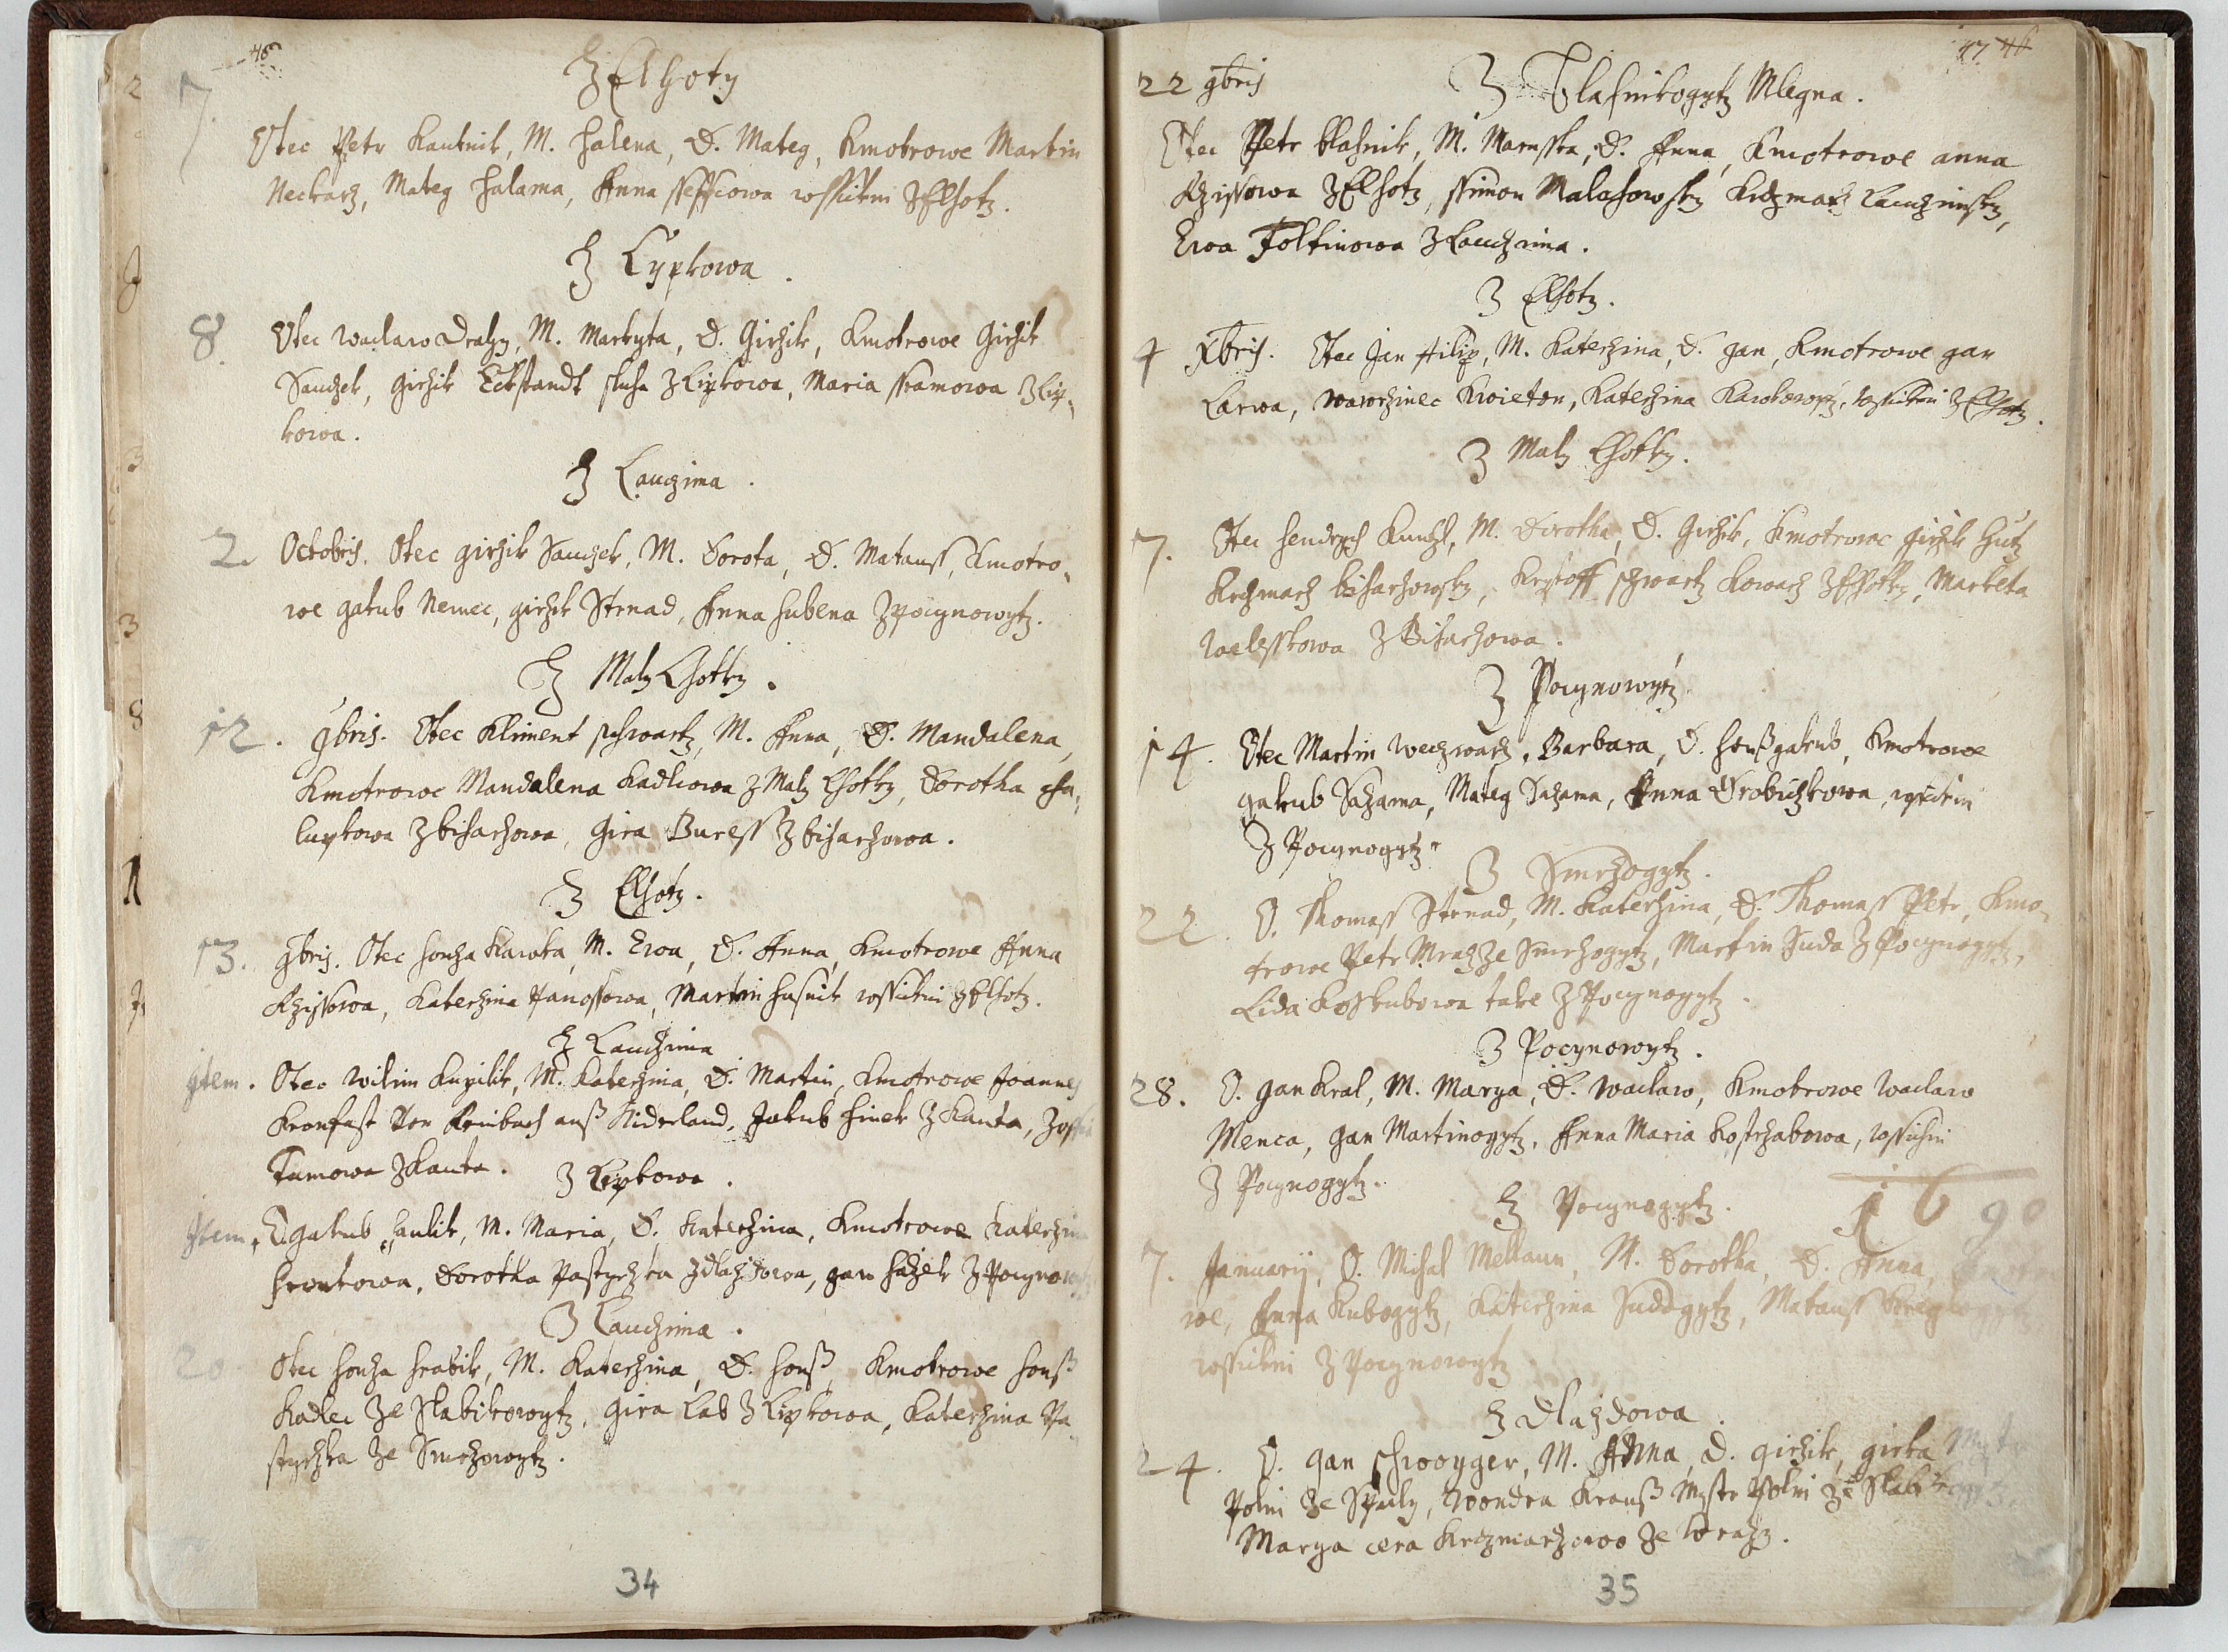 46
Z Elhoty
7. Otec Petr Kautnik, M. Halena, D. Mateg, Kmotrowe Martin
Neckarz, Mateg Halama, Anna wssickni Z Elhoty.
Z Lypkowa.
8. Otec Waclaw Drahy, M. Markyta, D. Girzik, Kmotrowe Girzik
Sauczek, Girzik Eckstandt sluha Z Lipkowa, Maria sskamowa Z Lip-
kowa.
Z Lauczima.
2. Octobris. Otec girzik Sauczek, M. Dorota, D. Matauss, Kmotro-
we gakub Nemec, girzik Strnad, Anna hubena Z pocynowytz.
Z Maly Lhotky.
12. 9bris. Otec Kliment schwartz, M. Anna, D. Mandalena,
Kmotrowe Mandalena Kadlecowa Z Maly Lhotky, Dorotha cha-
lupkowa Z biharzowa, Gira Buress Z biharzowa.
Z Elhoty.
13. 9bris. Otec honza Kawka, M. Ewa, D. Anna, Kmotrowe Anna
Kzissowa, Katerzina Panossowa, Martin husnik wssickni Z Elhoty.
Z Lauczima
Item. Otec Wilim Kupilik, M. Katerzina, D. Martin, Kmotrowe Joannes
Kronfast Von Reinbach auß Niderland, Jakub hinek Z Kauta,
Tumowa Z Kauta. Z Lipkowa.
Item. O. gakub haulik, M. Maria, D. Katerzina, Kmotrowe Katerzina
hrontowa, Dorotha Pastyrzka Z dlazdowa, gan hazek Z Pocynowytz
Z Lauczima.
20 Otec honza hrabik, M. Katerzina, D. honß, Kmotrowe honß
Kadlec Ze Slabikowytz, Gira Lab Z Lipkowa, Katerzina Pa-
styrzka Ze Smrzowytz.
34
47 46
22 9bris Z Blasnikogytz Mlegna.
Otec Petr blasnik, M. Marusska, D. Anna, Kmotrowe anna
Kzissowa Z Elhoty, ssimon Malachowsky Krczmarz Lauczimsky,
Ewa Foltinowa Z Lauczima.
Z Elhoty.
4 Xbris. Otec Jan Filip, M. Katerzina, D. gan, Kmotrowe gan
Larwa, Wawrzinec Kwieton, Katerzina wssickni Z Elhoty.
Z Maly Lhotky.
7. Otec hendrych Kunzl, M. Dorotha, D. Girzik, Kmotrowe girzik Hutz
Krczmarz biharzowsky, Krystoff schwartz Kowarz Z Elhotky, Marketa
Welesskowa Z Biharzowa.
Z Pocynowytz.
14. Otec Martin Weczwarz, Barbara, D. honß gakub, Kmotrowe
gakub Sazama, Mateg Sazama, Anna Drobiczkowa, wssickni
Z Pocynogytz.
Z Smrzogytz.
22. O. Thomass Strnad, M. Katerzina, D. Thomass Petr, Kmo-
trowe Petr Mraz Ze Smrzogytz, Martin Suda Z Pocynogytz,
Lida Koskubowa take Z Pocynogytz.
Z Pocynowytz.
28. O. gan Kral, M. Marya, D. Waclaw, Kmotrowe Waclaw
Menca, gan Martinogytz, Anna Maria Kostrzabowa, wssichni
Z Pocynogytz.
Z Pocynogytz. 1690
7. Januarij, O. Michal Mellaun, M. Dorotha, D. Anna,
we, Anna Kubogytz, Katerzina Sudogytz, Matauss
wssickni Z Pocynowytz
Z Dlazdowa.
24. O. gan schwoyger, M. Anna, D. girzik, girka
Polni Ze Spuly, Wondra Krauß Mystr Polni Ze
Marya cera Krczmarzowo Ze Worazy.
35